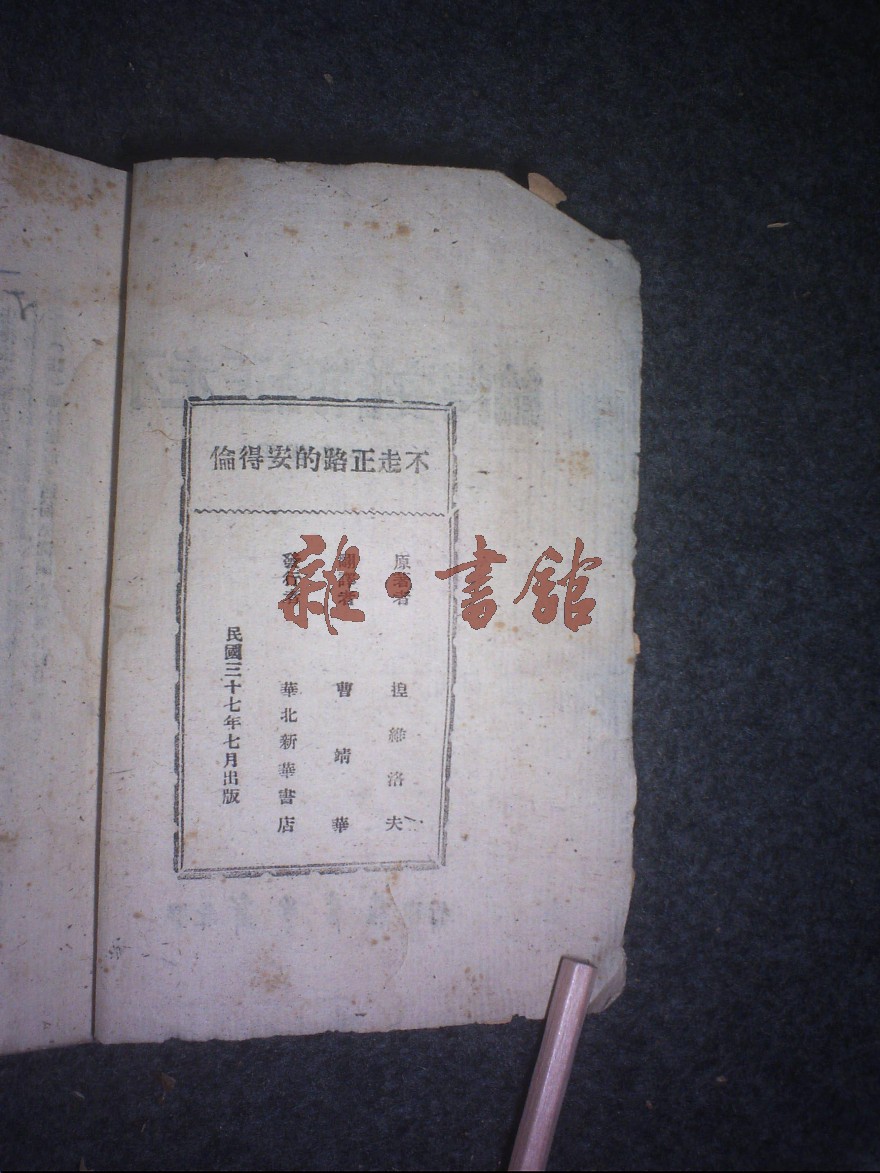 不走正路的安得倫
原著者 揑維洛夫
翻譯者 曹靖華
發行者 華北新華書店
民國三十七年七月出版
雜·書館